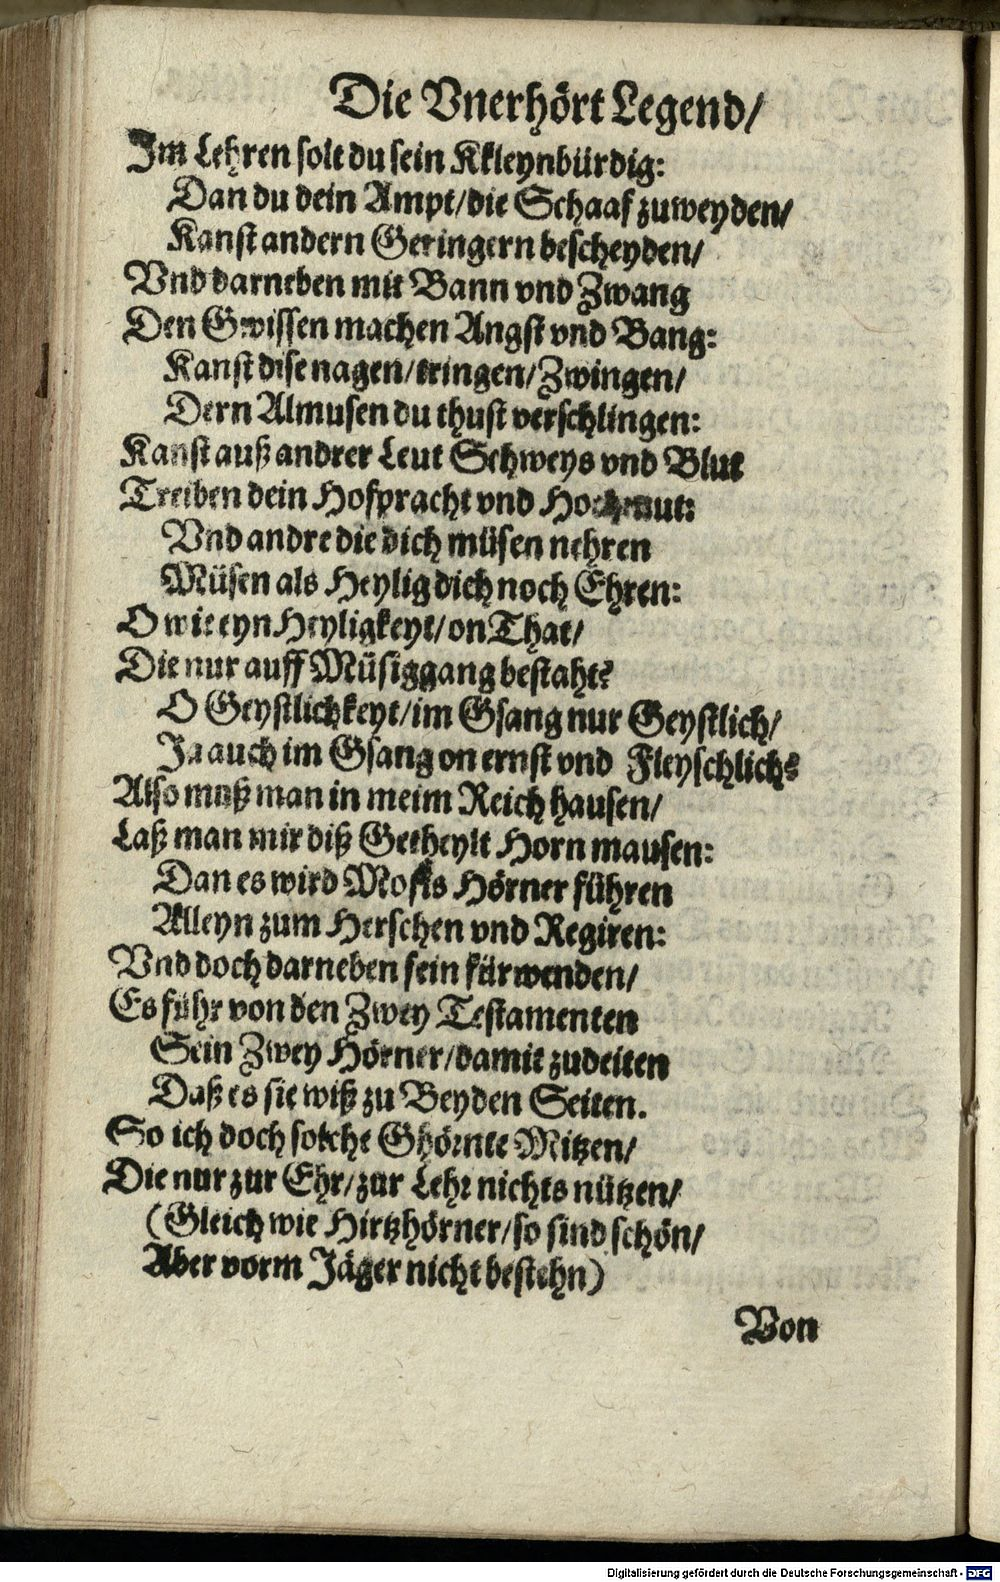 Die Vnerhört Legend/
Im Lehren solt du sein Kkleynbürdig:
Dan du dein Ampt/die Schaaf zuweyden/
Kanst andern Geringern bescheyden/
Vnd darneben mit Bann vnd Zwang
Den Gwissen machen Angst vnd Bang:
Kanst dise nagen/tringen/Zwingen/
Dern Almusen du thust verschlingen:
Kanst auß andrer Leut Schweys vnd Blut
Treiben dein Hofpracht vnd Hochmut:
Vnd andre die dich müsen nehren
Müsen als Heylig dich noch Ehren:
O wie eyn Heyligkeyt/on That/
Die nur auff Müsiggang bestaht?
O Geystlichkeyt/im Gsang nur Geystlich/
Ja auch im Gsang on ernst vnd Fleyschlich?
Also muß man in meim Reich hausen/
Laß man mir diß Getheylt Horn mausen:
Dan es wird Moses Hörner führen
Alleyn zum Herschen vnd Regiren:
Vnd doch darneben sein fürwenden/
Es führ von den Zwey Testamenten
Sein Zwey Hörner/damit zudeiten
Daß es sie wiß zu Beyden Seiten.
So ich doch solche Ghörnte Mitzen/
Die nur zur Ehr/zur Lehr nichts nützen/
(Gleich wie Hirtzhörner/so sind schön/
Aber vorm Jäger nicht bestehn)
Von
Digitalisierung gefördert durch die Deutsche Forschungsgemeinschaft - DFG